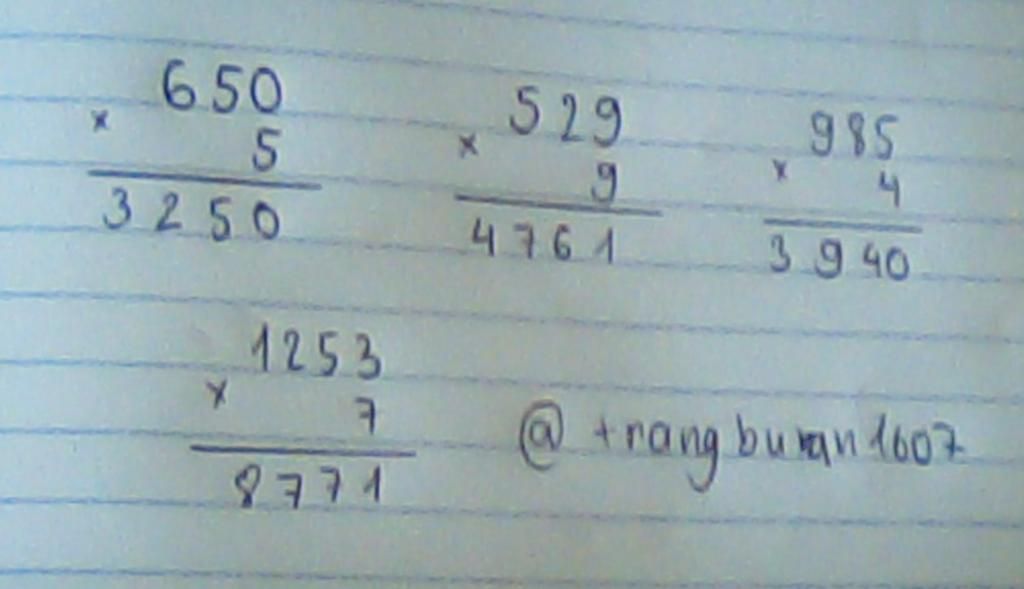 650
× 5
3250
529
× 9
4761
985
× 4
3940
1253
× 7
8771
@trangburan1607